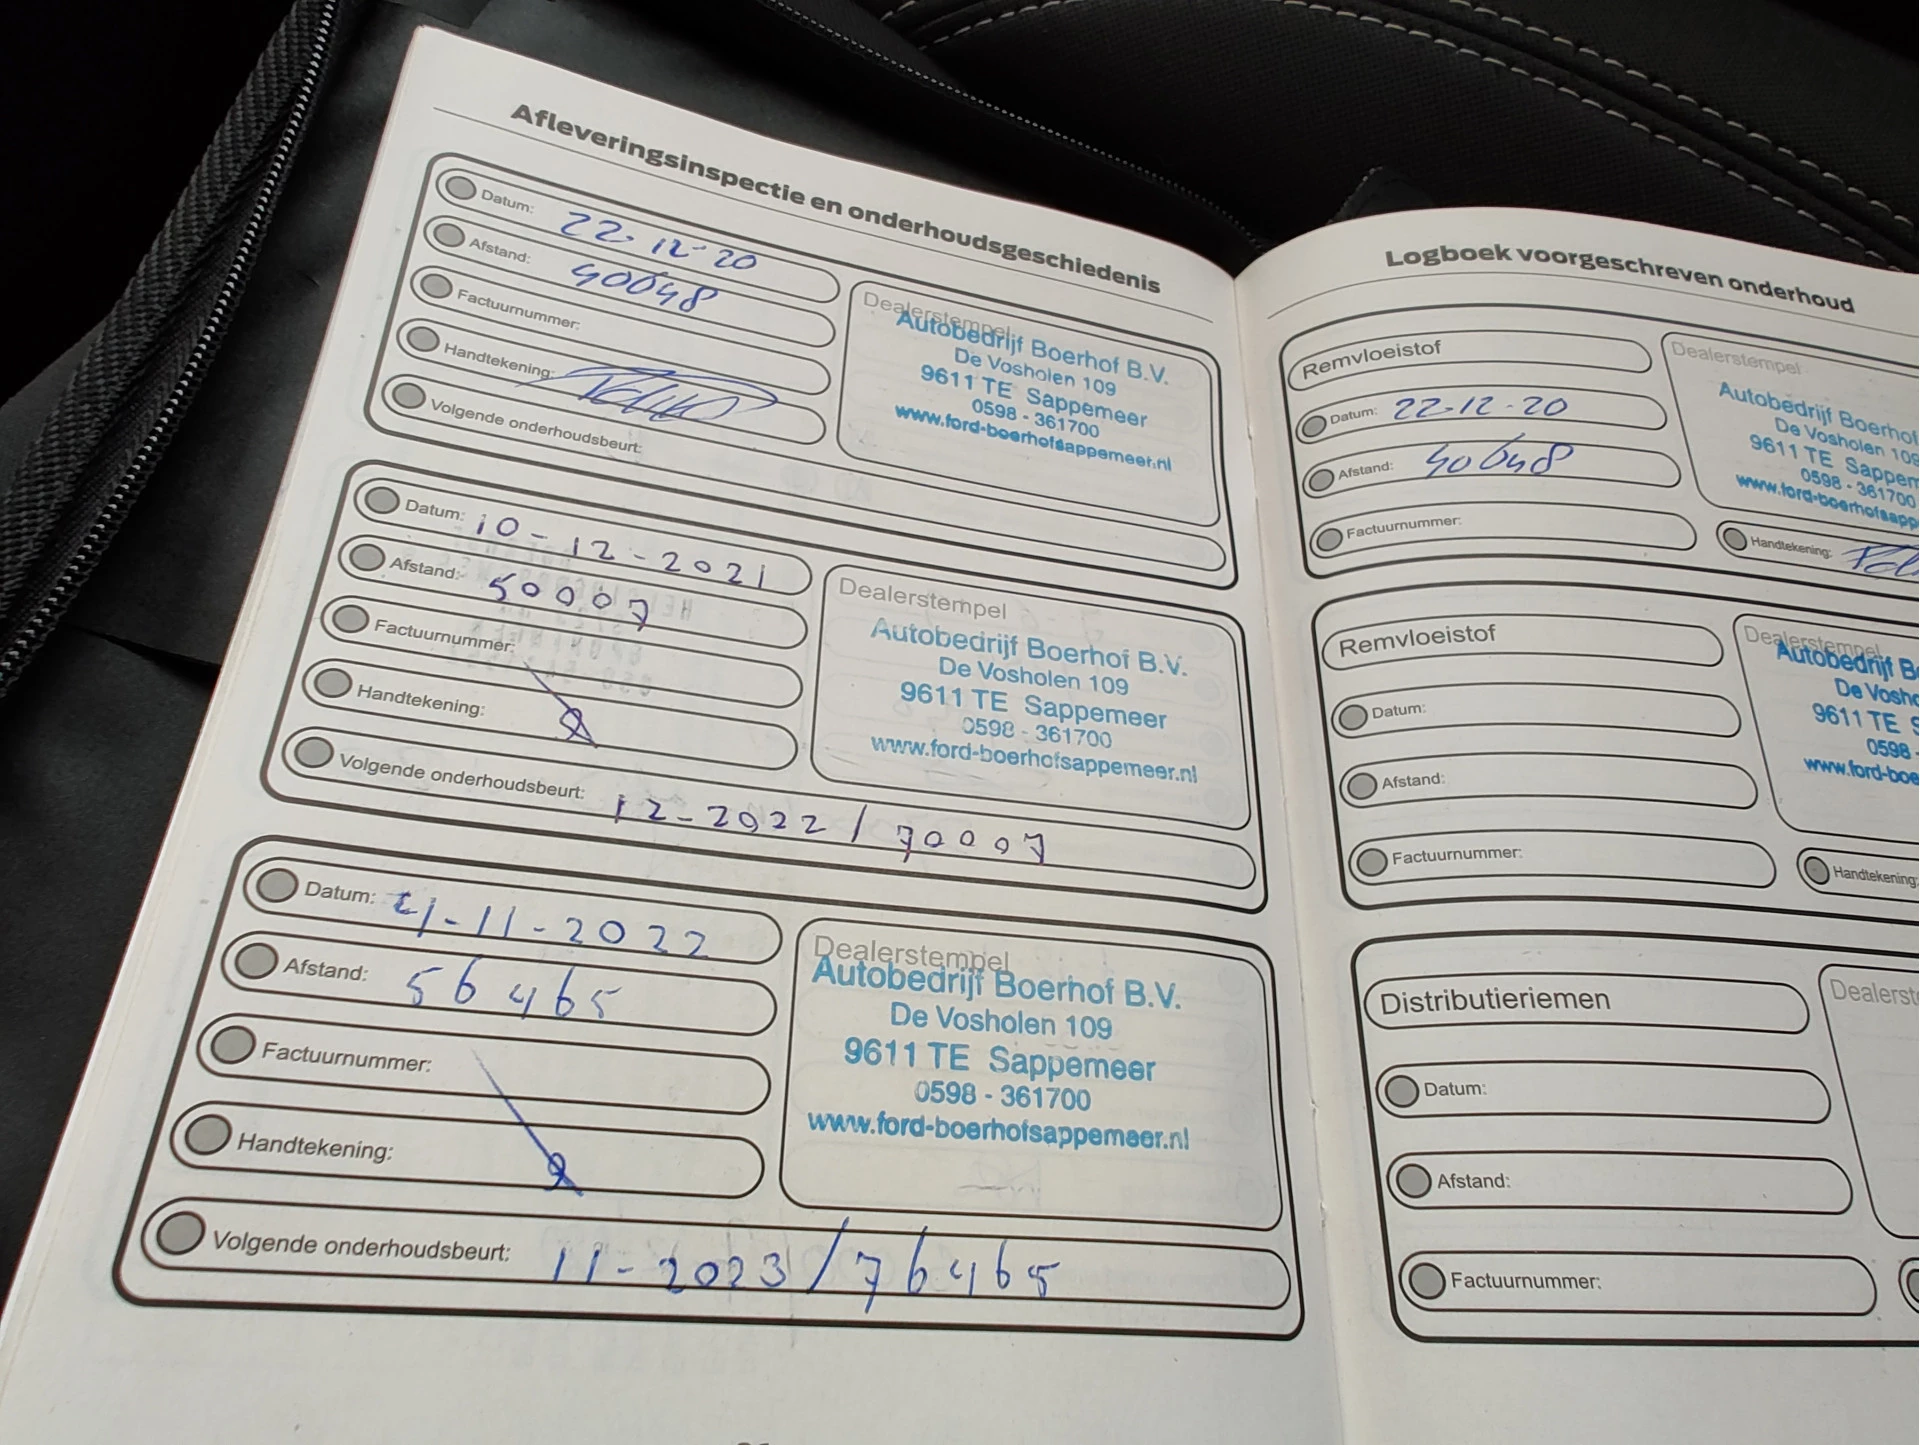 Afleveringsinspectie en onderhoudsgeschiedenis
Datum: 22-12-20
Afstand: 40648
Factuurnummer:
Handtekening:
Volgende onderhoudsbeurt:
Dealerstempel
Autobedrijf Boerhof B.V.
De Vosholen 109
9611 TE Sappemeer
0598 - 361700
www.ford-boerhofsappemeer.nl
Datum: 10-12-2021
Afstand: 50007
Factuurnummer:
Handtekening:
Volgende onderhoudsbeurt: 12-2022 / 70007
Dealerstempel
Autobedrijf Boerhof B.V.
De Vosholen 109
9611 TE Sappemeer
0598 - 361700
www.ford-boerhofsappemeer.nl
Datum: -11-2022
Afstand: 56465
Factuurnummer:
Handtekening:
Volgende onderhoudsbeurt: 11-2023 / 76465
Dealerstempel
Autobedrijf Boerhof B.V.
De Vosholen 109
9611 TE Sappemeer
0598 - 361700
www.ford-boerhofsappemeer.nl
Logboek voorgeschreven onderhoud
Remvloeistof
Datum: 22-12-20
Afstand: 40648
Factuurnummer:
Dealerstempel
Autobedrijf Boerhof
De Vosholen 109
9611 TE Sappem
0598 - 361700
www.ford-boerhofsapp
Handtekening:
Remvloeistof
Datum:
Afstand:
Factuurnummer:
Dealerstempel
Autobedrijf B
De Vosho
9611 TE S
0598 -
www.ford-boe
Handtekening:
Distributieriemen
Datum:
Afstand:
Factuurnummer:
Dealerst